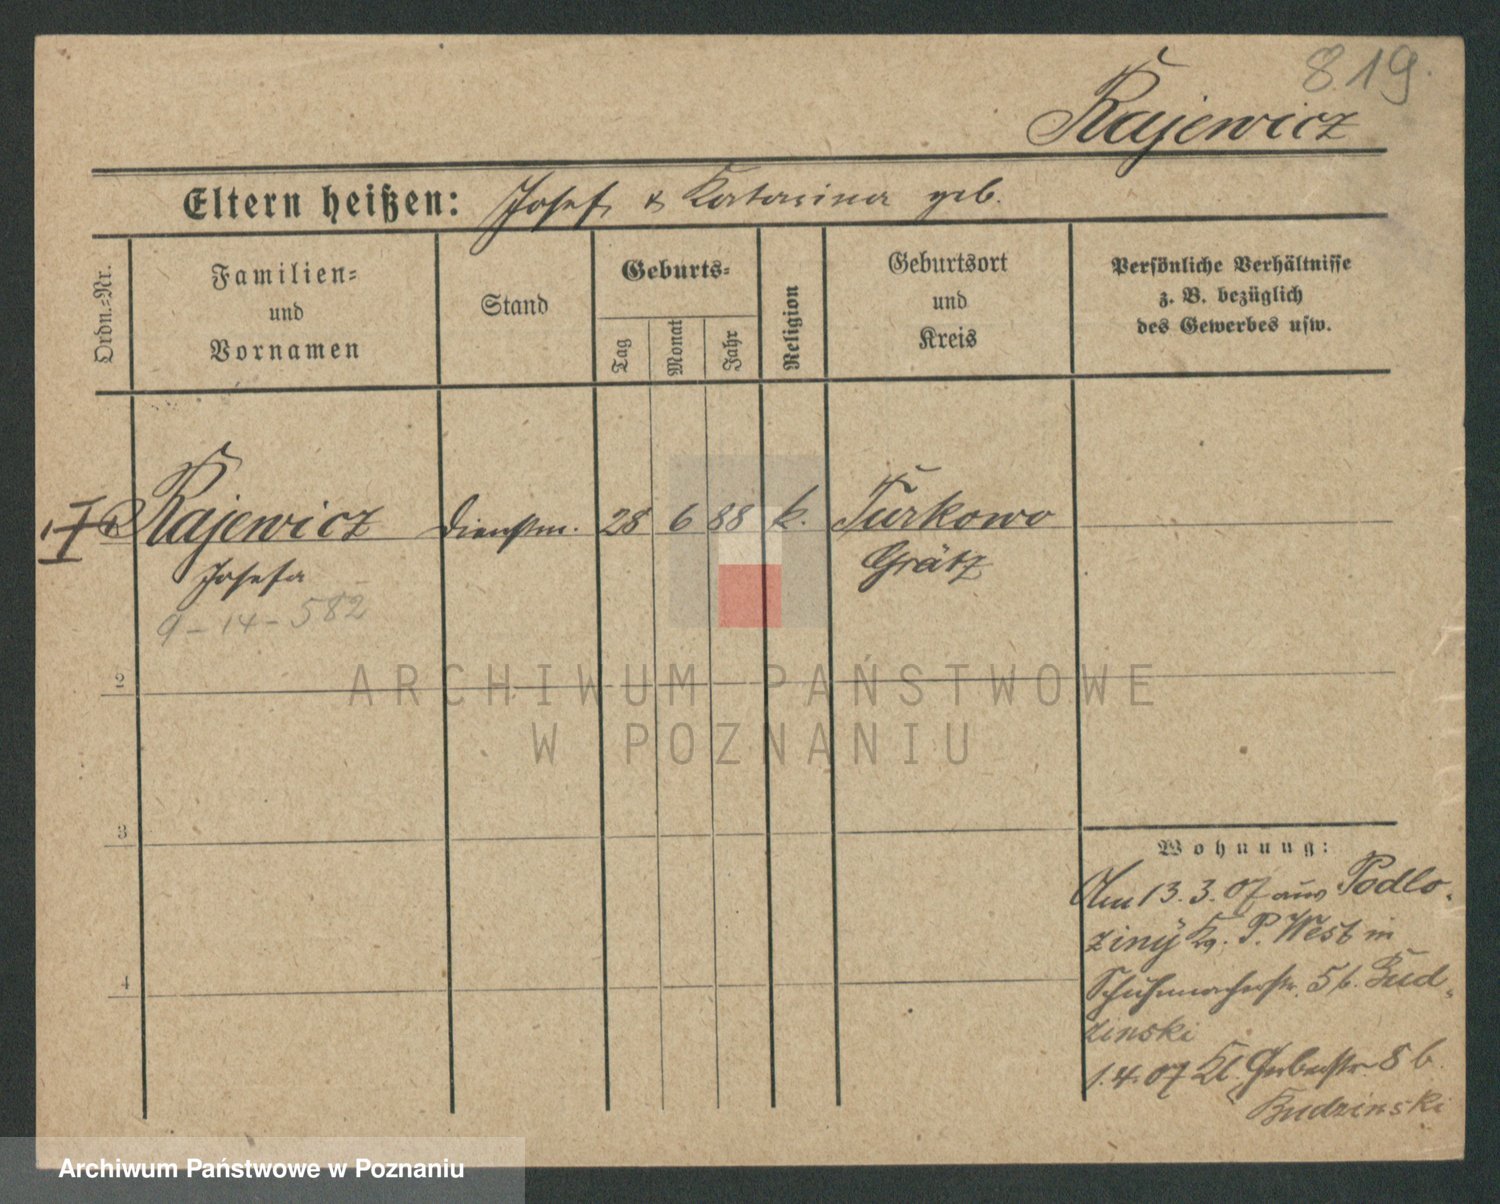 8.19.
Rajewicz
Eltern heißen: Josef & Katarina geb.
Ordn.=Nr.
Familien=
und
Vornamen
Stand
Geburts=
Tag
Monat
Jahr
Religion
Geburtsort
und
Kreis
Persönliche Verhältnisse
z. B. bezüglich
des Gewerbes usw.
I Rajewicz Dienstm. 28 6 88 k. Turkowo
Josefa Grätz
9-14-582
2
3
4
Wohnung:
Am 13.3.07 aus Podlo-
ziny Kr. P. West in
Schuhmacherstr. 5 b. Bud-
zinski
1.4.07 Kl. Gerberstr 8 b.
Budzinski
ARCHIWUM PAŃSTWOWE
W POZNANIU
Archiwum Państwowe w Poznaniu